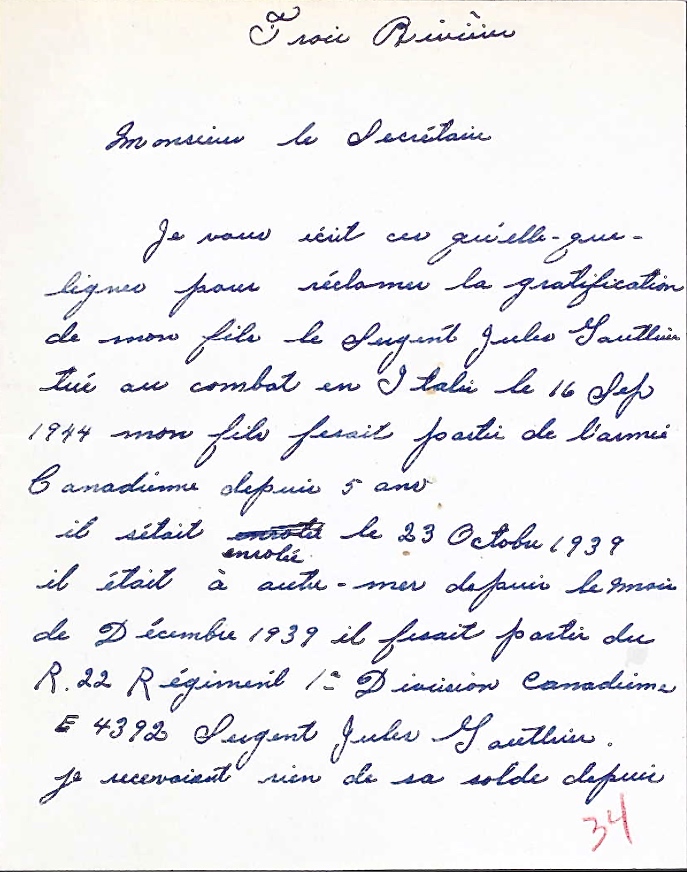 Trois Rivière
Monsieur le Secrétaire
Je vous écrit ces qu'elle-que-
lignes pour réclamer la gratification
de mon fils le Sergent Jules Gauthier
tué au combat en Italie le 16 Sep
1944 mon fils fesait partie de l'armée
Canadienne depuis 5 ans
il s'était enrolée le 23 Octobre 1939
il était à outre-mer depuis le mois
de Décembre 1939 il fesait partie du
R. 22 Régiment 1re Division Canadienne
E 4392 Sergent Jules Gauthier.
je recevoient rien de sa solde depuis
34